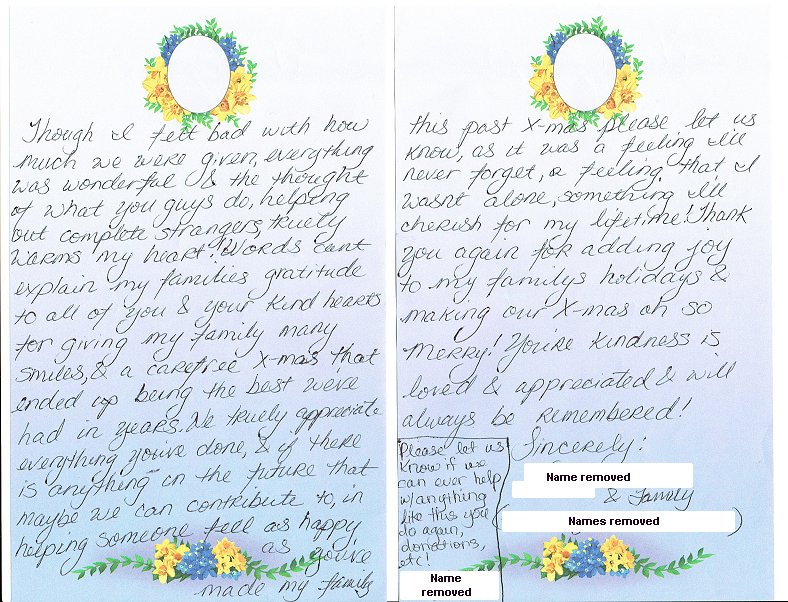 Though I felt bad with how
much we were given, everything
was wonderful & the thought
of what you guys do, helping
out complete strangers, truely
warms my heart! Words can't
explain my families gratitude
to all of you & your kind hearts
for giving my family many
smiles, & a carefree X-mas that
ended up being the best we've
had in years. We truely appreciate
everything you've done, & if there
is anything in the future that
maybe we can contribute to, in
helping someone feel as happy
as you've
made my family
this past X-mas please let us
know, as it was a feeling I'll
never forget, a feeling that I
wasnt alone, something I'll
cherish for my lifetime! Thank
you again for adding joy
to my familys holidays &
making our X-mas oh so
merry! You're kindness is
loved & appreciated & will
always be remembered!
Sincerely:
Name removed
& Family
(Names removed)
Please let us
know if we
can ever help
w/anything
like this you
do again,
donations,
etc!
Name
removed